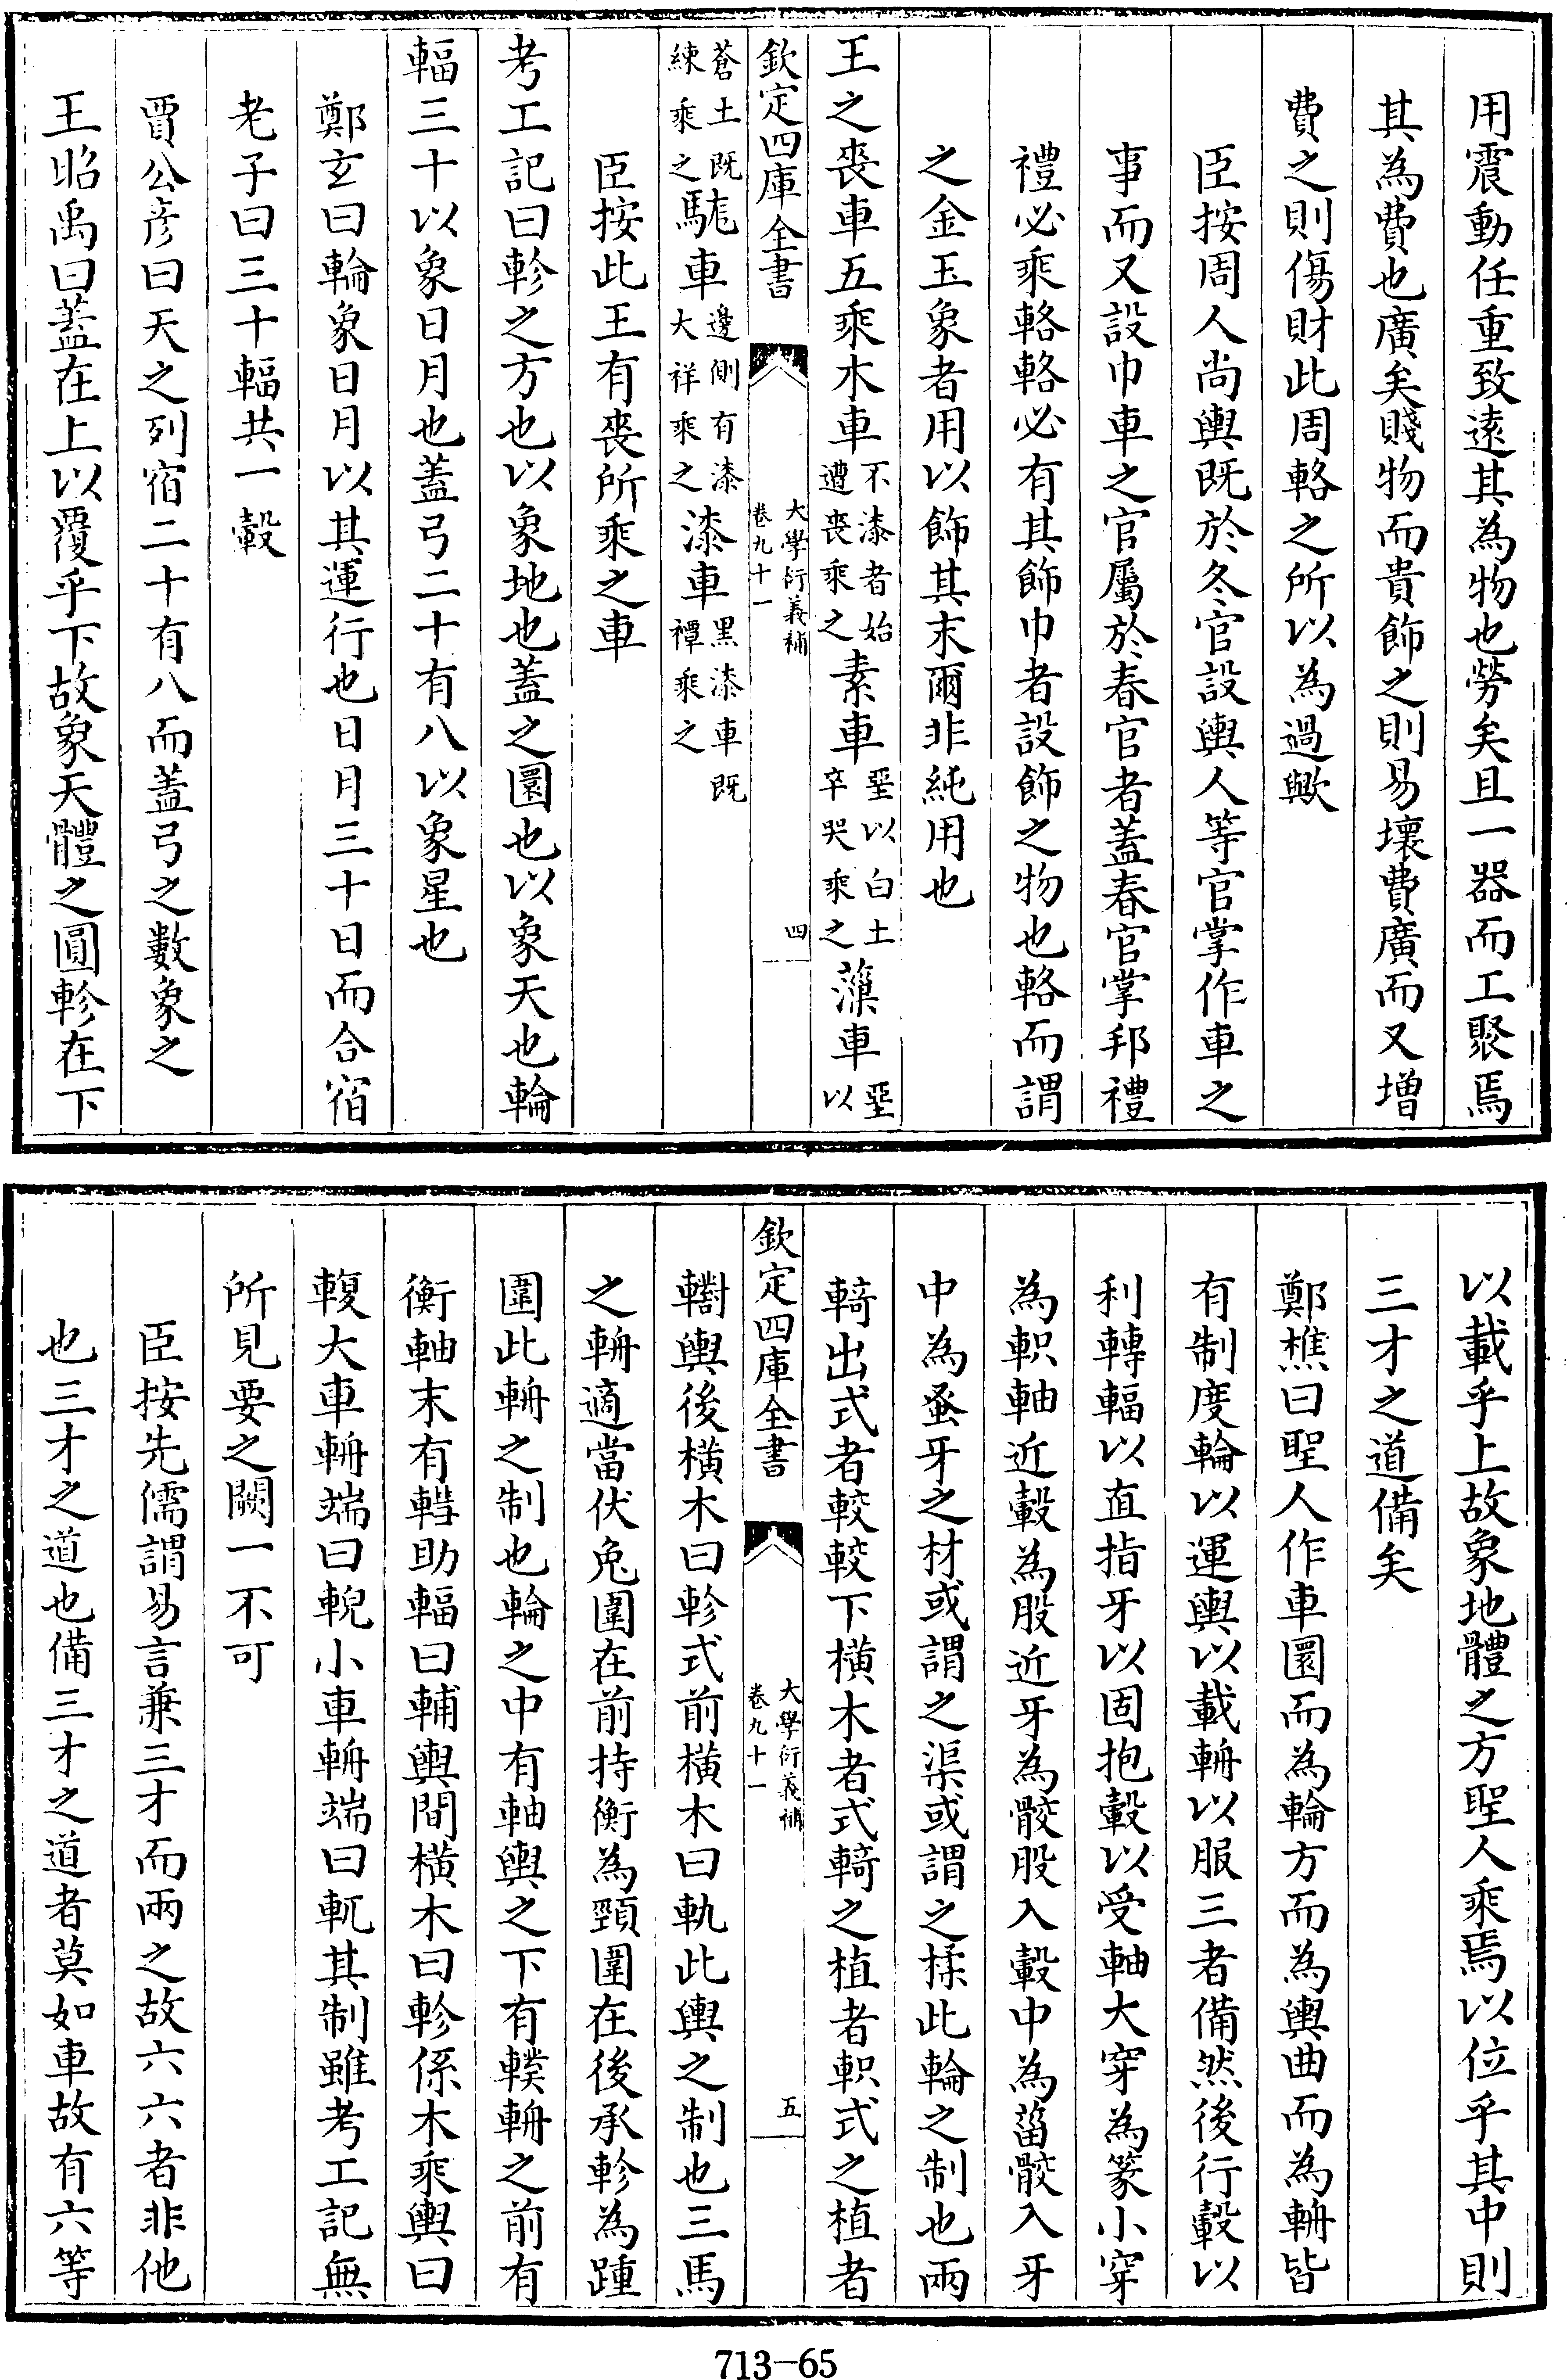 用震動任重致遠其為物也勞矣且一器而工聚焉
其為費也廣矣賤物而貴飾之則易壞費廣而又增
費之則傷財此周輅之所以為過歟
臣按周人尚輿既於冬官設輿人等官掌作車之
事而又設巾車之官屬於春官者蓋春官掌邦禮
禮必乘輅輅必有其飾巾者設飾之物也輅而謂
之金玉象者用以飾其末爾非純用也
王之喪車五乘木車不漆者始遭喪乘之素車堊以白土卒哭乘之薻車堊以
欽定四庫全書
大學衍義補
卷九十一
四
蒼土既練乘之駹車邊側有漆大祥乘之漆車黑漆車既禫乘之
臣按此王有喪所乘之車
考工記曰軫之方也以象地也蓋之圜也以象天也輪
輻三十以象日月也蓋弓二十有八以象星也
鄭玄曰輪象日月以其運行也日月三十日而合宿
老子曰三十輻共一轂
賈公彦曰天之列宿二十有八而蓋弓之數象之
王昭禹曰蓋在上以覆乎下故象天體之圓軫在下
以載乎上故象地體之方聖人乘焉以位乎其中則
三才之道備矣
鄭樵曰聖人作車圜而為輪方而為輿曲而為輈皆
有制度輪以運輿以載輈以服三者備然後行轂以
利轉輻以直指牙以固抱轂以受軸大穿為篆小穿
為軹軸近轂為股近牙為骹股入轂中為菑骹入牙
中為蚤牙之材或謂之渠或謂之揉此輪之制也兩
輢出式者較較下橫木者式輢之植者軹式之植者
欽定四庫全書
大學衍義補
卷九十一
五
轛輿後橫木曰軫式前橫木曰軓此輿之制也三馬
之輈適當伏兔圍在前持衡為頸圍在後承軫為踵
圍此輈之制也輪之中有軸輿之下有轐輈之前有
衡軸末有轊助輻曰輔輿間橫木曰軫係木乘輿曰
輹大車輈端曰輗小車輈端曰軏其制雖考工記無
所見要之闕一不可
臣按先儒謂易言兼三才而兩之故六六者非他
也三才之道也備三才之道者莫如車故有六等
713-65